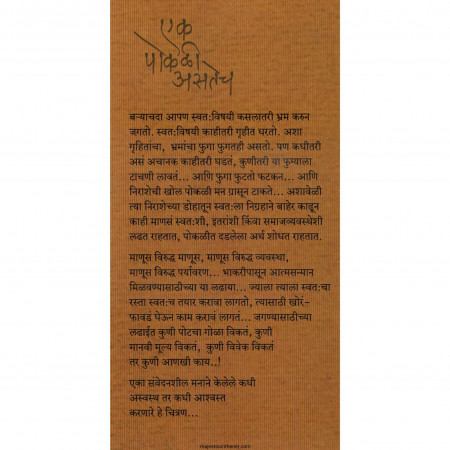 एक
पोकळी
असतेच
बऱ्याचदा आपण स्वत:विषयी कसलातरी भ्रम करुन
जगतो. स्वत:विषयी काहीतरी गृहीत धरतो. अशा
गृहितांचा, भ्रमांचा फुगा फुगतही असतो. पण कधीतरी
असं अचानक काहीतरी घडतं, कुणीतरी या फुग्याला
टाचणी लावतं... आणि फुगा फुटतो फटकन... आणि
निराशेची खोल पोकळी मन ग्रासून टाकते... अशावेळी
त्या निराशेच्या डोहातून स्वत:ला निग्रहाने बाहेर काढून
काही माणसं स्वत:शी, इतरांशी किंवा समाजव्यवस्थेशी
लढत राहतात, पोकळीत दडलेला अर्थ शोधत राहतात.
माणूस विरुद्ध माणूस, माणूस विरुद्ध व्यवस्था,
माणूस विरुद्ध पर्यावरण... भाकरीपासून आत्मसन्मान
मिळवण्यासाठीच्या या लढाया... ज्याला त्याला स्वत:चा
रस्ता स्वत:च तयार करावा लागतो, त्यासाठी खोरं-
फावडं घेऊन काम करावं लागतं... जगण्यासाठीच्या
लढाईत कुणी पोटचा गोळा विकतं, कुणी
मानवी मूल्य विकतं, कुणी विवेक विकतं
तर कुणी आणखी काय..!
एका संवेदनशील मनाने केलेले कधी
अस्वस्थ तर कधी आश्वस्त
करणारे हे चित्रण...